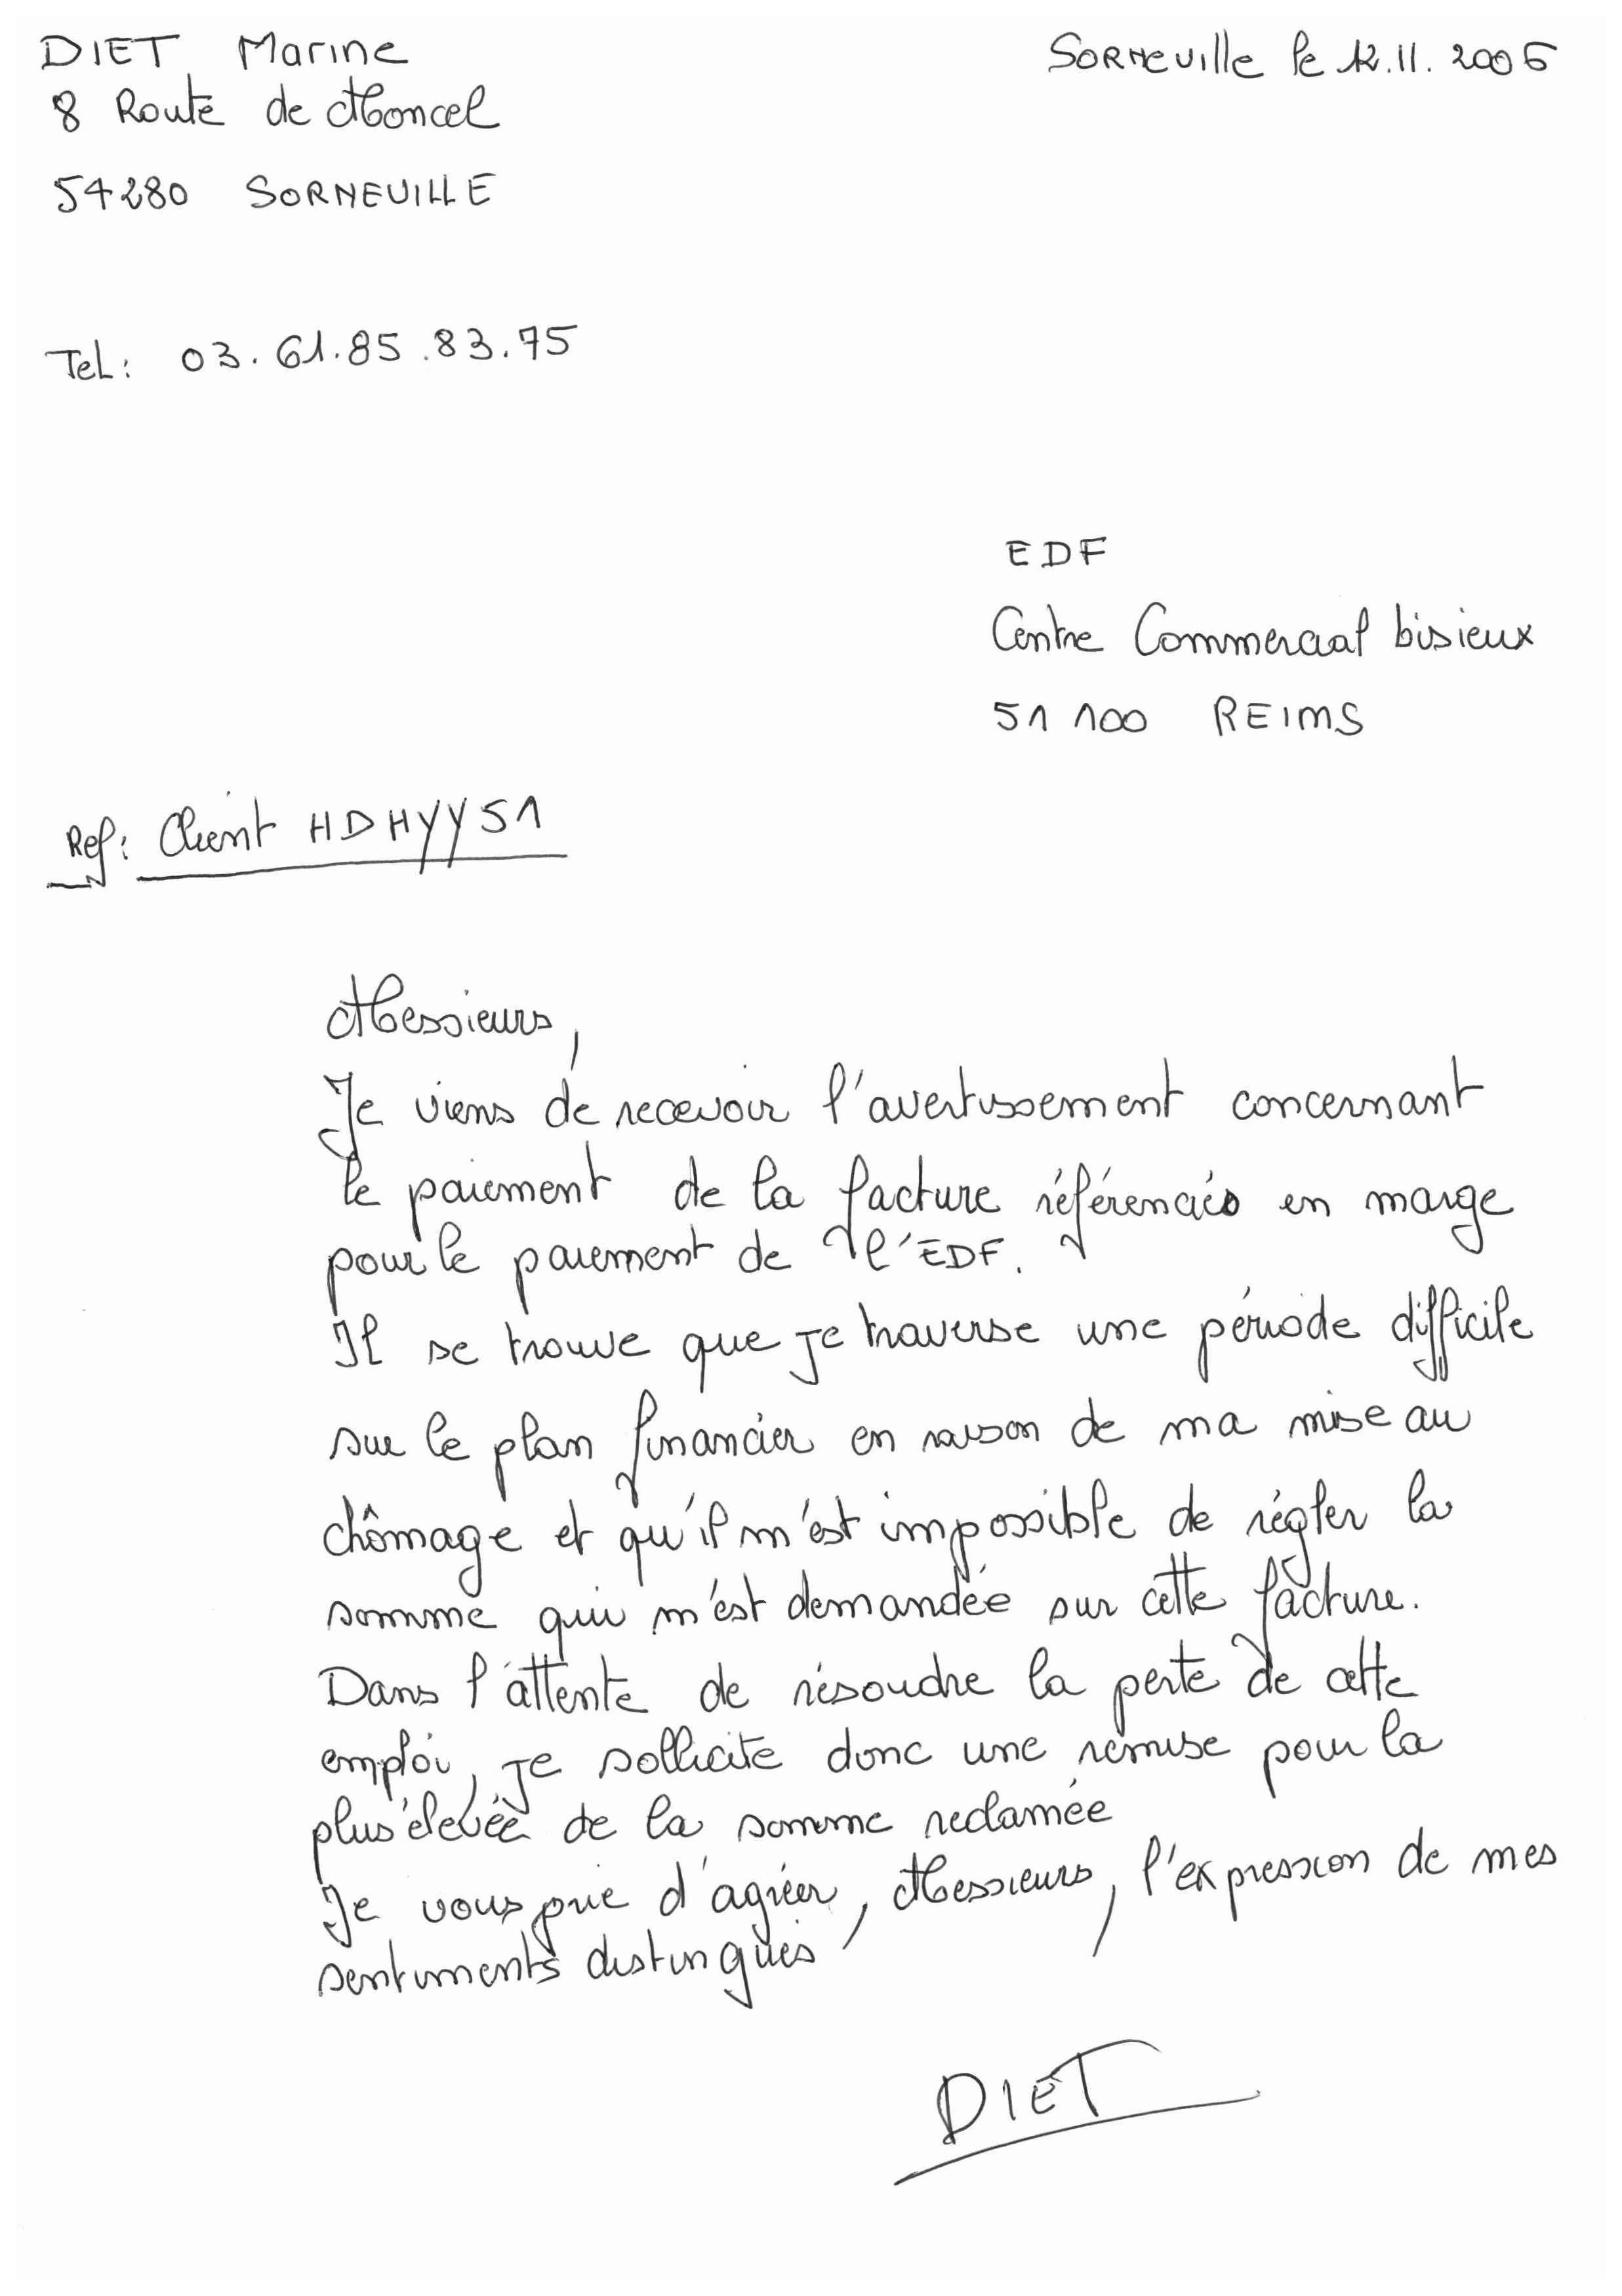 DIET Marine
Sorneville le 12.11.2006
8 Route de Moncel
54280 SORNEVILLE
Tel: 03.61.85.83.75
EDF
Centre Commercial bisieux
51 100 REIMS
Ref: Client HDHYY51
Messieurs,
Je viens de recevoir l'avertissement concernant
le paiement de la facture référenciés en marge
pour le paiement de l'EDF.
Il se trouve que je traverse une période difficile
sur le plan financier en raison de ma mise au
chômage et qu'il m'est impossible de régler la
somme qui m'est demandée sur cette facture.
Dans l'attente de résoudre la perte de cette
emploi, je sollicite donc une remise pour la
plus élevée de la somme reclamée
Je vous prie d'agréer, Messieurs, l'expression de mes
sentiments distingués
DIET